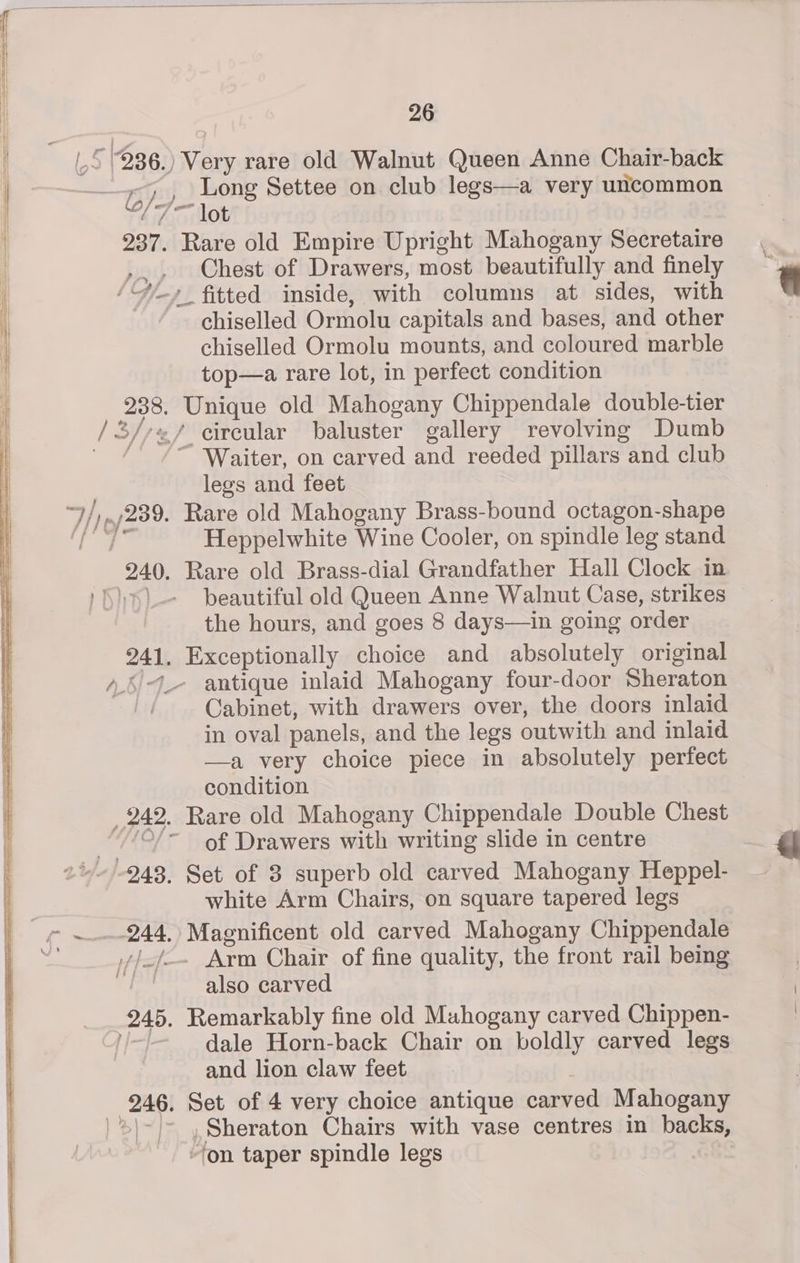 26
236. Very rare old Walnut Queen Anne Chair-back
Long Settee on club legs—a very uncommon
lot
237. Rare old Empire Upright Mahogany Secretaire
Chest of Drawers, most beautifully and finely
fitted inside, with columns at sides, with
chiselled Ormolu capitals and bases, and other
chiselled Ormolu mounts, and coloured marble
top—a rare lot, in perfect condition
238. Unique old Mahogany Chippendale double-tier
circular baluster gallery revolving Dumb
Waiter, on carved and reeded pillars and club
legs and feet
239. Rare old Mahogany Brass-bound octagon-shape
Heppelwhite Wine Cooler, on spindle leg stand
240. Rare old Brass-dial Grandfather Hall Clock in
beautiful old Queen Anne Walnut Case, strikes
the hours, and goes 8 days—in going order
241. Exceptionally choice and absolutely original
antique inlaid Mahogany four-door Sheraton
Cabinet, with drawers over, the doors inlaid
in oval panels, and the legs outwith and inlaid
—a very choice piece in absolutely perfect
condition
242. Rare old Mahogany Chippendale Double Chest
of Drawers with writing slide in centre
243. Set of 3 superb old carved Mahogany Heppel-
white Arm Chairs, on square tapered legs
244. Magnificent old carved Mahogany Chippendale
Arm Chair of fine quality, the front rail being
also carved
245. Remarkably fine old Mahogany carved Chippen-
dale Horn-back Chair on boldly carved legs
and lion claw feet
246. Set of 4 very choice antique carved Mahogany
Sheraton Chairs with vase centres in backs,
on taper spindle legs